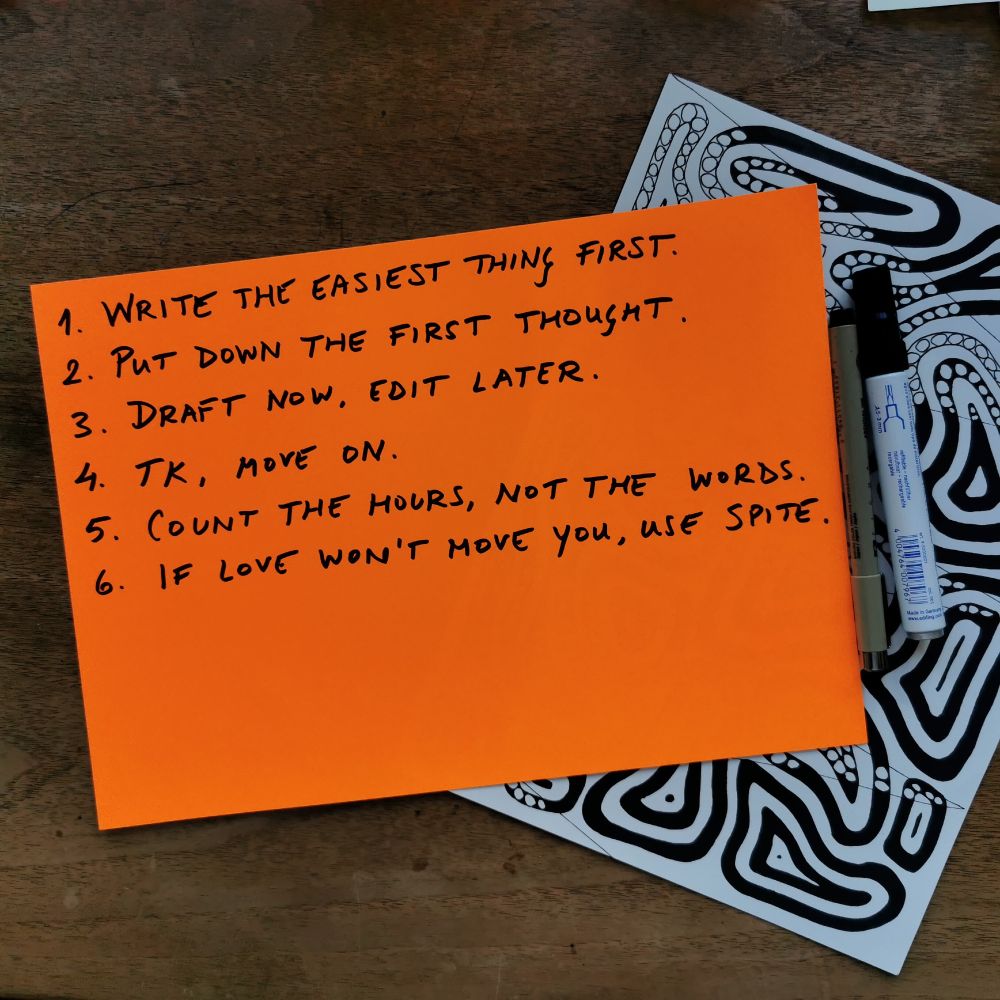 1. WRITE THE EASIEST THING FIRST.
2. PUT DOWN THE FIRST THOUGHT.
3. DRAFT NOW, EDIT LATER.
4. TK, MOVE ON.
5. COUNT THE HOURS, NOT THE WORDS.
6. IF LOVE WON'T MOVE YOU, USE SPITE.
4 004764 007967
Made in Germany